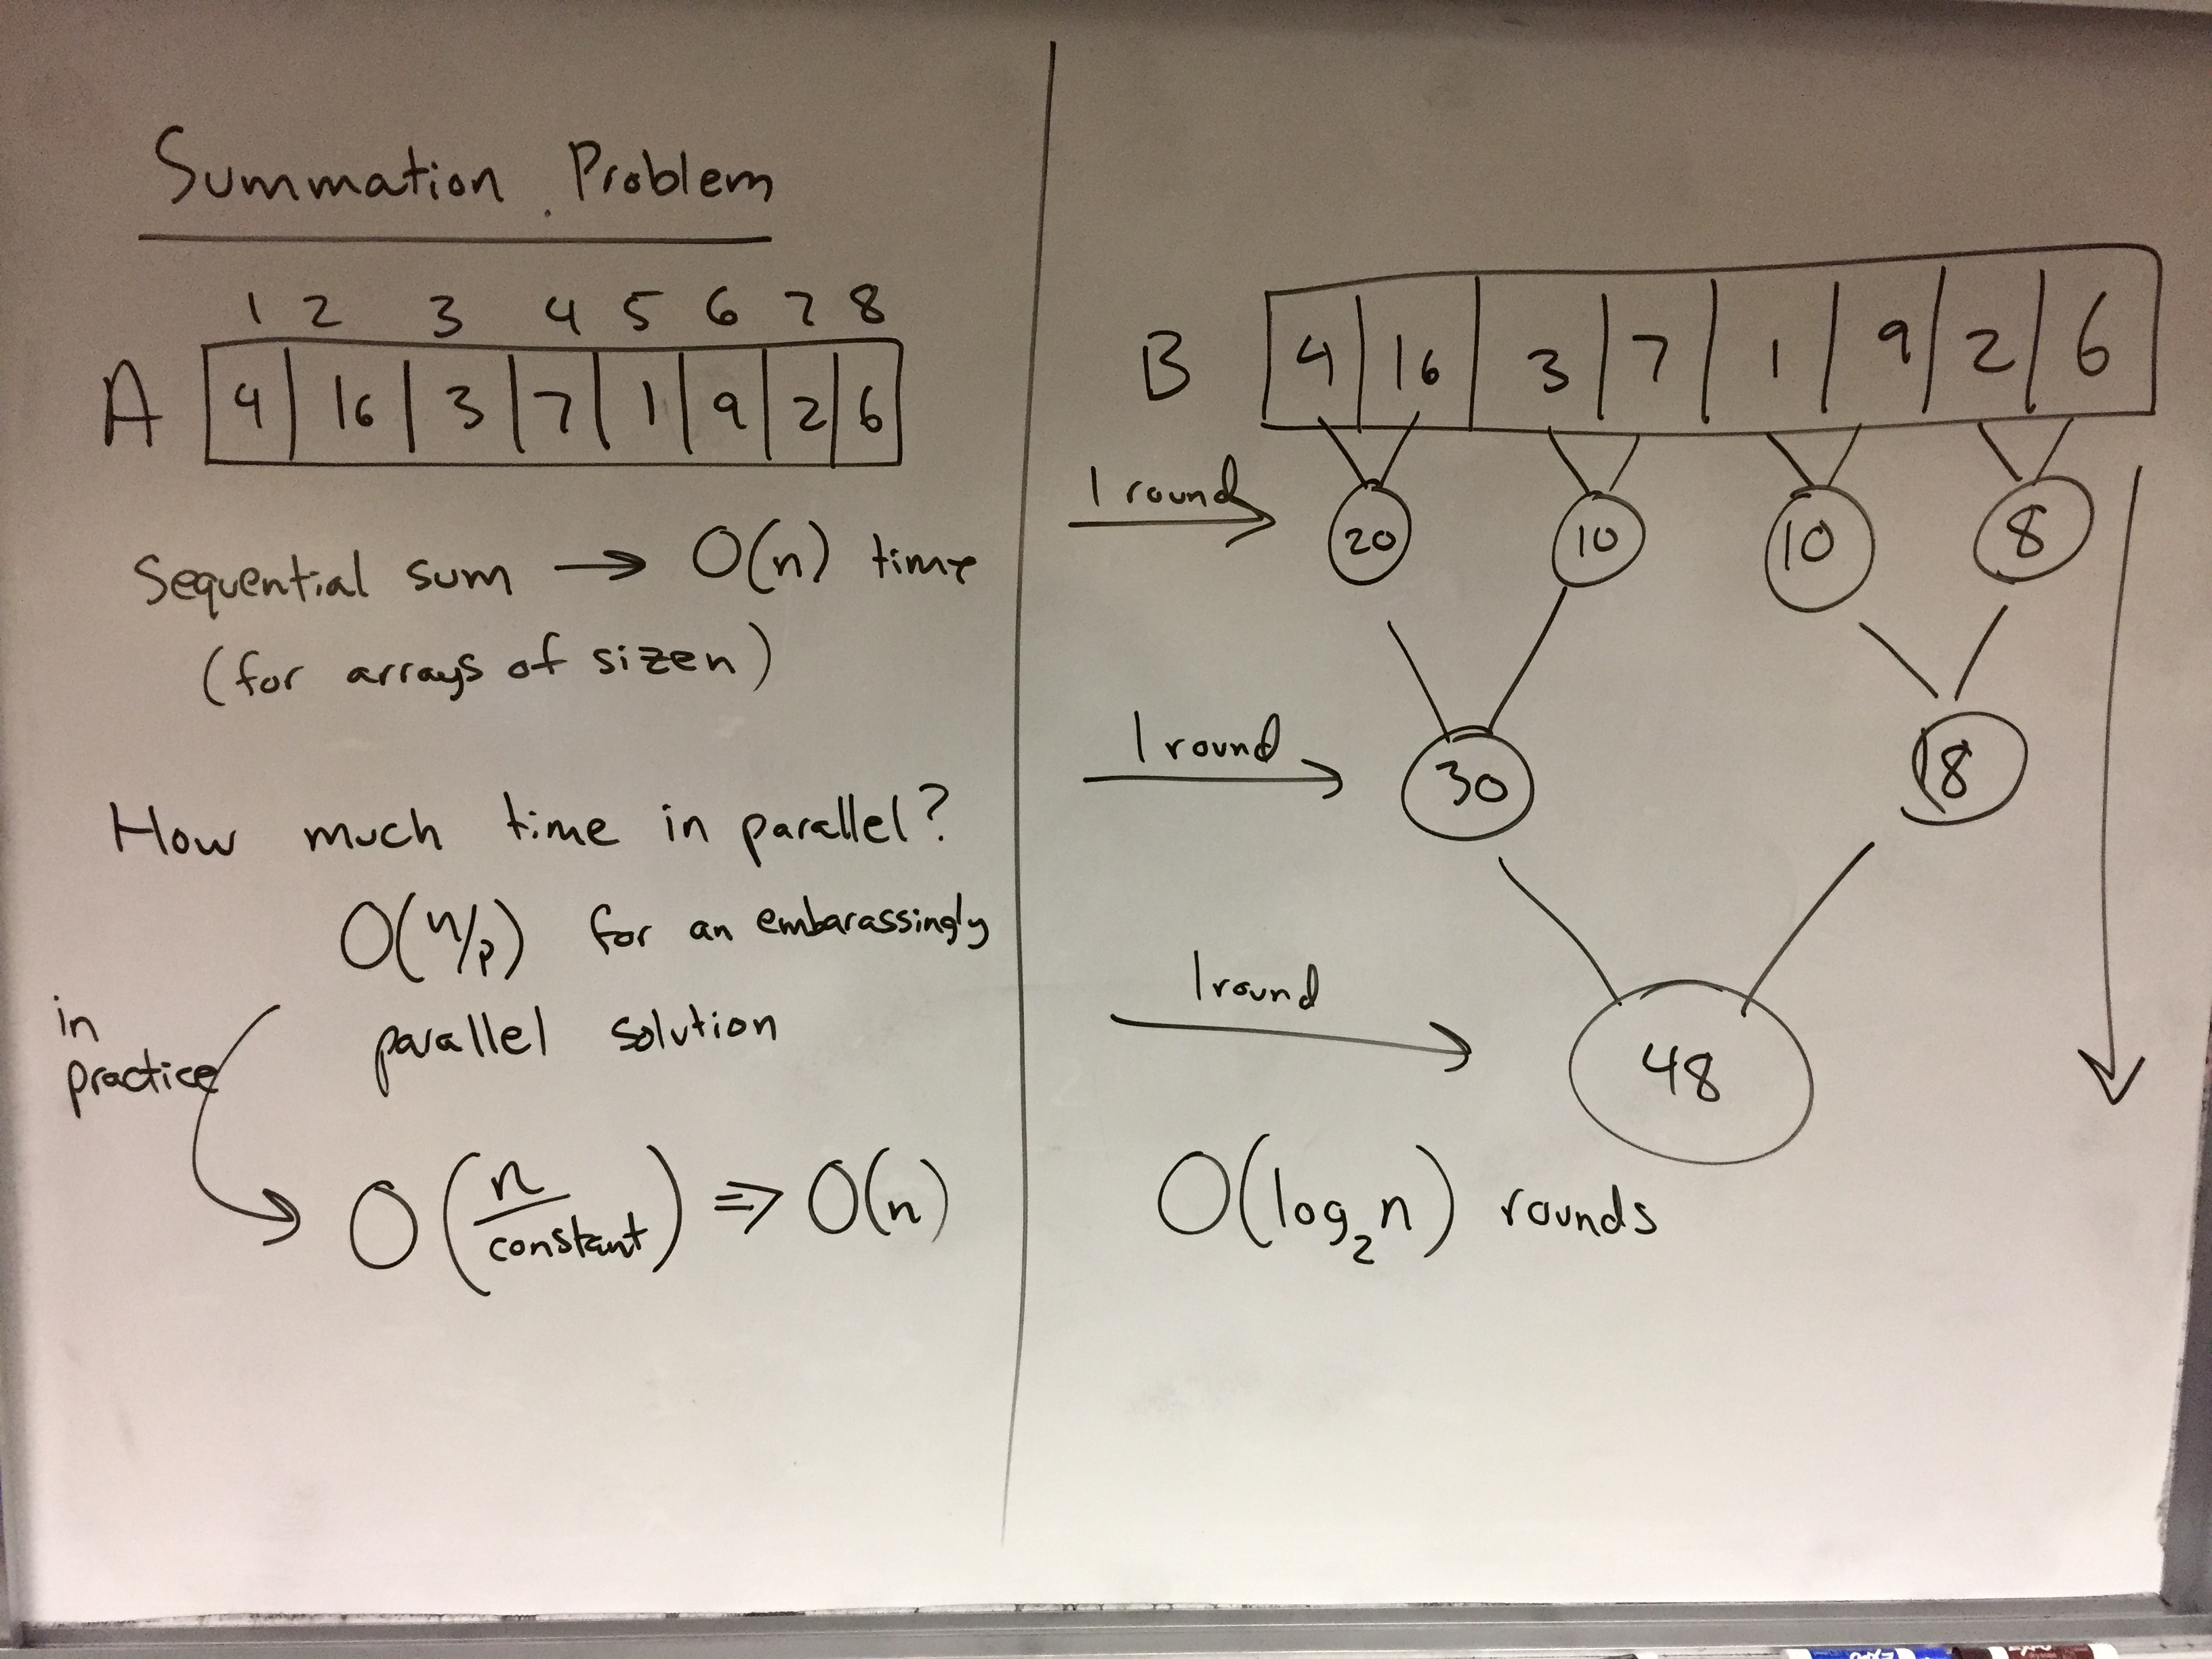 Summation Problem
1 2 3 4 5 6 7 8
A 4 16 3 7 1 9 2 6
Sequential sum → O(n) time
(for arrays of size n)
How much time in parallel?
O(n/p) for an embarassingly
parallel solution
in
practice
O(n/constant) ⇒ O(n)
B 4 16 3 7 1 9 2 6
1 round → 20 10 10 8
1 round → 30 18
1 round → 48
O(log₂n) rounds